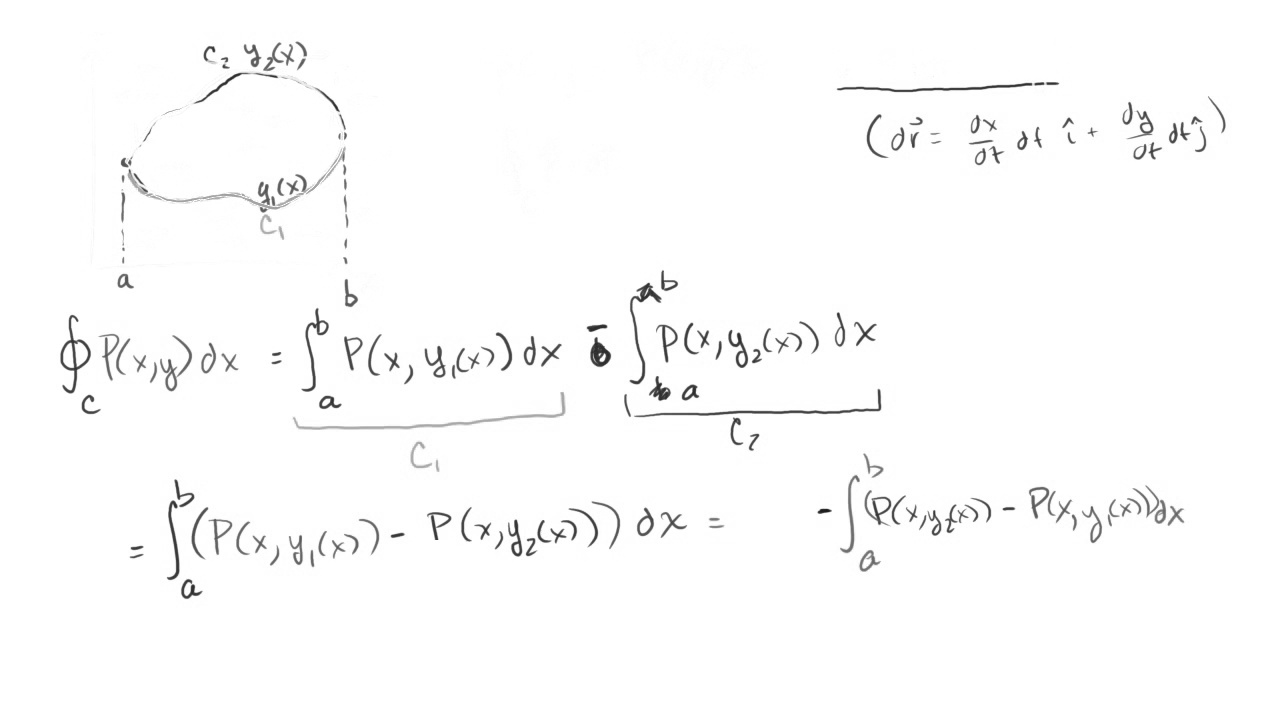 C₂ y₂(x)
(dr⃗ = dx/dt dt î + dy/dt dt ĵ)
y₁(x)
C₁
a
b
∮_C P(x,y) dx = ∫_a^b P(x, y₁(x)) dx - ∫_a^b P(x, y₂(x)) dx
C₁
C₂
= ∫_a^b (P(x, y₁(x)) - P(x, y₂(x))) dx = - ∫_a^b (P(x, y₂(x)) - P(x, y₁(x))) dx